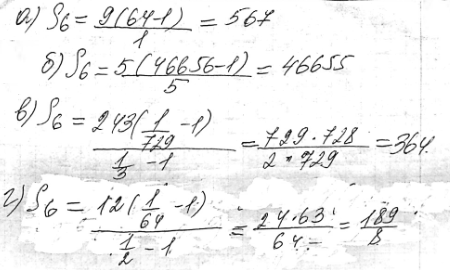 а) S₆ = 9(64-1)/1 = 567
б) S₆ = 5(46656-1)/5 = 46655
в) S₆ = 243(1/729 - 1)/(1/3 - 1) = 729·728/2·729 = 364.
г) S₆ = 12(1/64 - 1)/(1/2 - 1) = 24·63/64 = 189/8